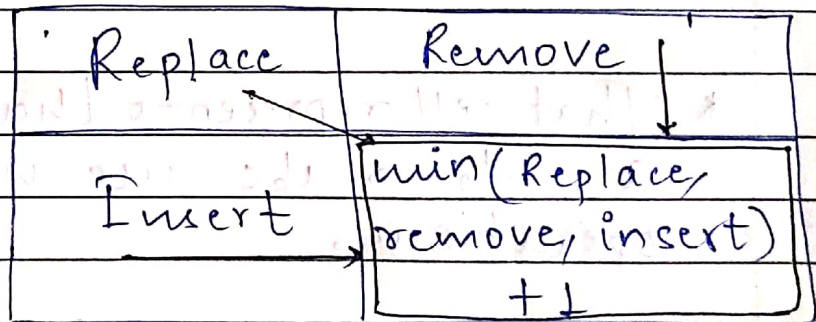 Replace
Remove
Insert
min(Replace,
remove, insert)
+1